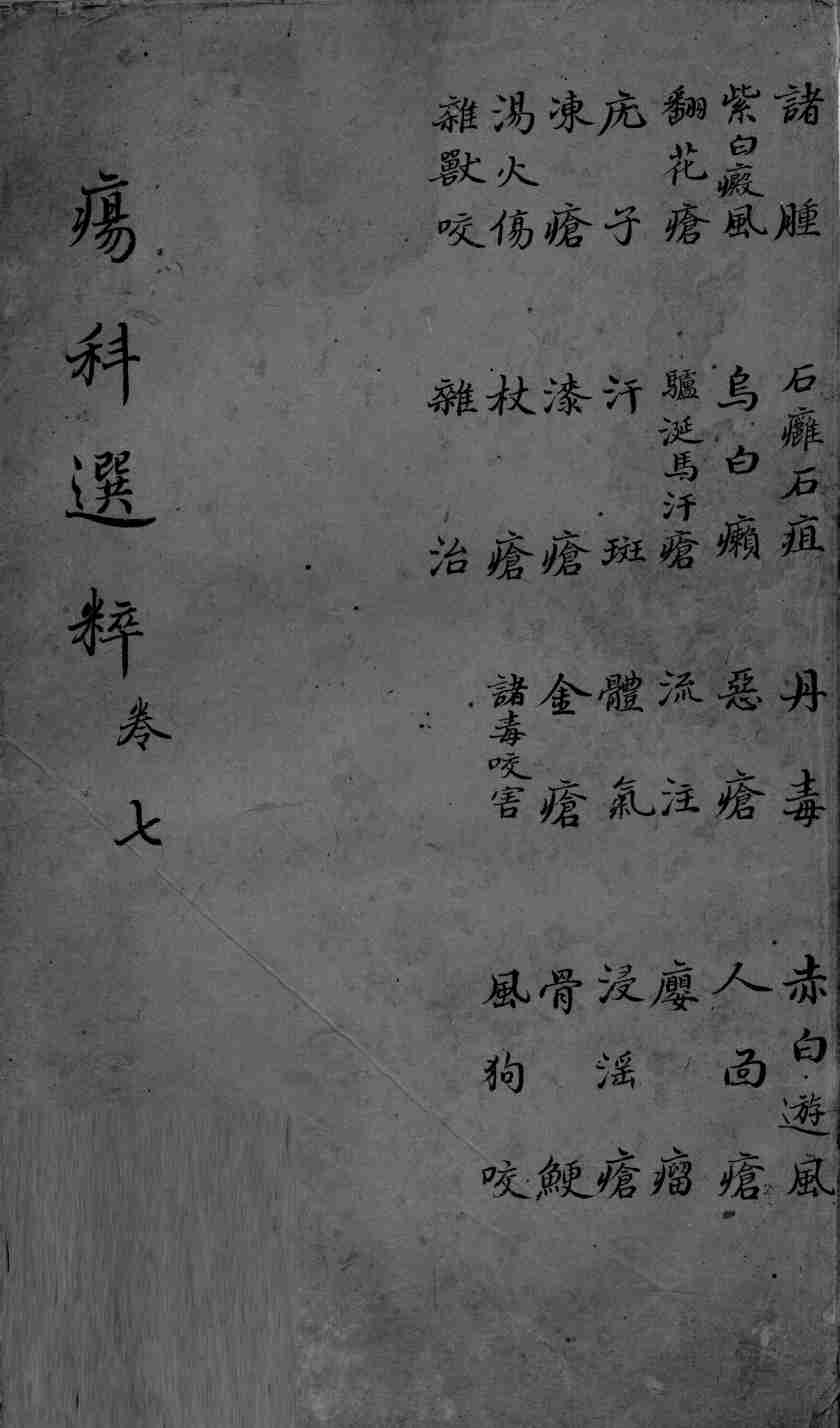 諸腫　石癰石疽　丹毒　赤白遊風
紫白癜風　烏白癩　惡瘡　人面瘡
翻花瘡　驢涎馬汗瘡　流注　癭瘤
疣子　汗斑　體氣　浸淫瘡
凍瘡　漆瘡　金瘡　骨鯁
湯火傷　杖瘡　諸毒咬害　風狗咬
雜獸咬　雜治
瘍科選粹　卷七